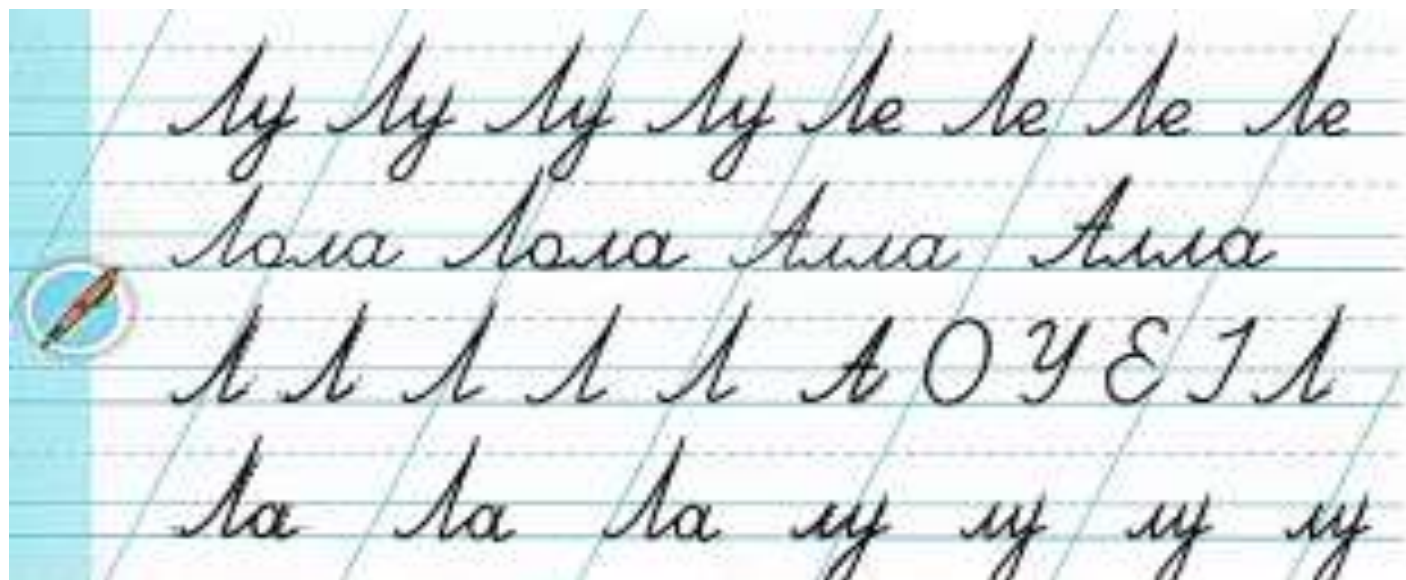 Лу Лу Лу Лу Ле Ле Ле Ле
Лола Лола Алла Алла
Л Л Л Л Л А О У Е І Л
Ла Ла Ла лу лу лу лу